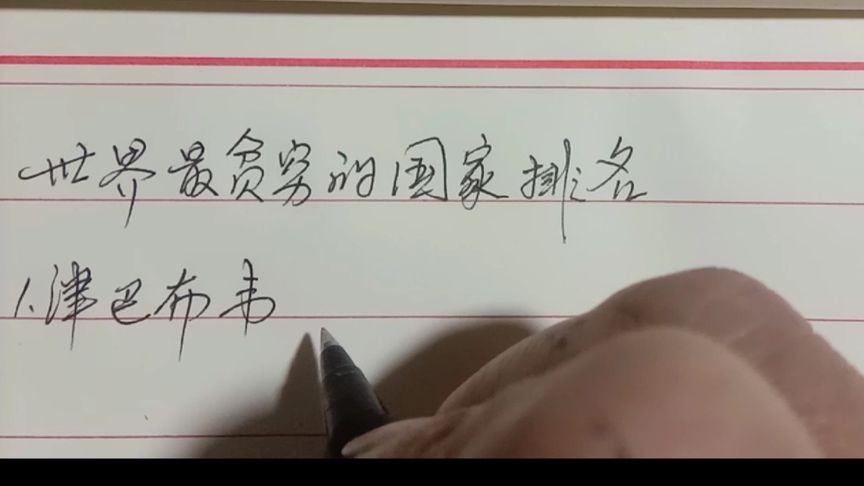 世界最贫穷的国家排名
1.津巴布韦